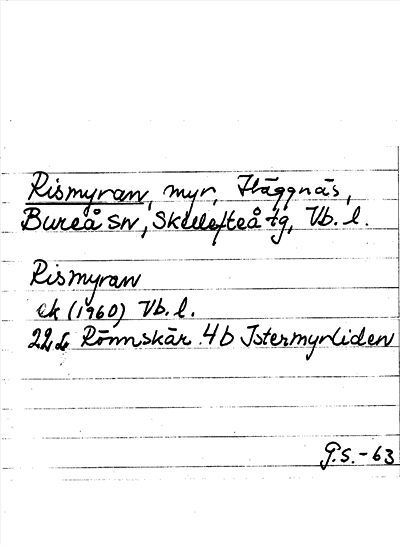 Rismyran, myr, Häggnäs,
Bureå sn, Skellefteå tg, Vb. l.
Rismyran
ek (1960) Vb. l.
22 L Rönnskär 4b Istermyrliden
G.S.-63